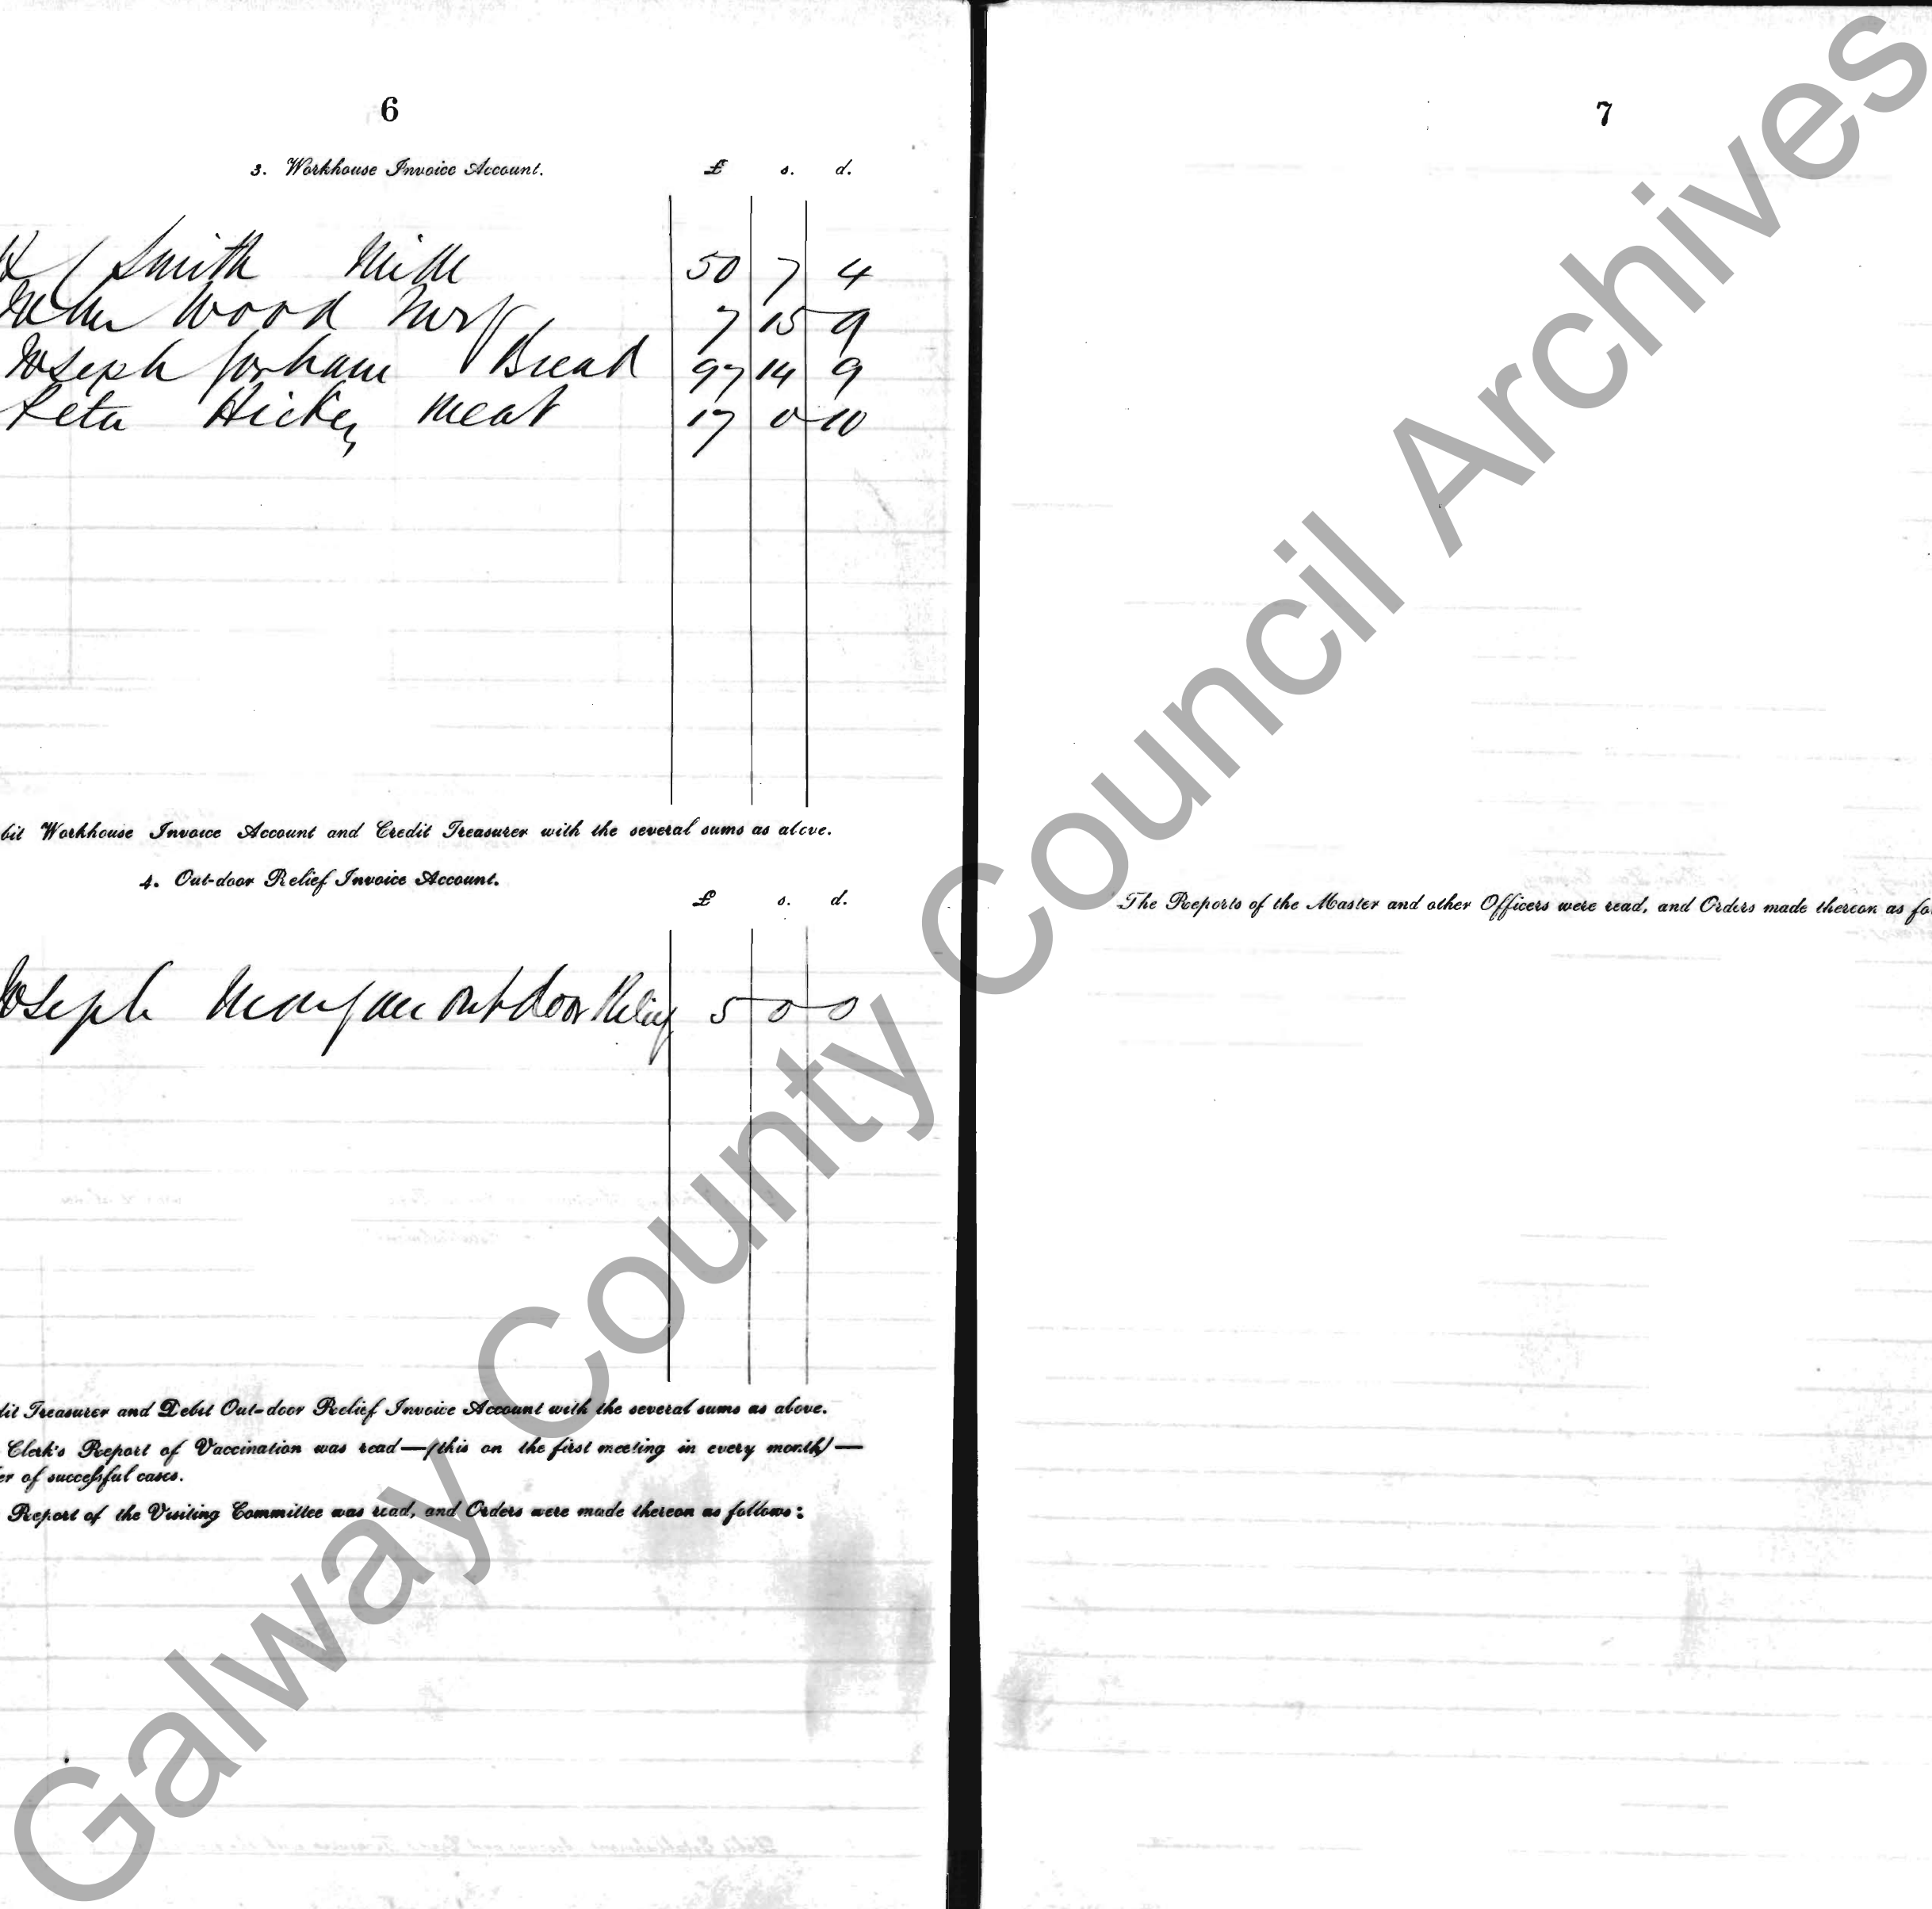 6
3. Workhouse Invoice Account. £ s. d.
Smith Milk 50 7 4
Wood 7 15 9
Joseph Gorham Bread 97 14 9
Peter Hickey Meat 17 0 10
bit Workhouse Invoice Account and Credit Treasurer with the several sums as above.
4. Out-door Relief Invoice Account.
£ s. d.
Joseph Mangan Outdoor Relief 5 0 0
dit Treasurer and Debit Out-door Relief Invoice Account with the several sums as above.
Clerk's Report of Vaccination was read—(this on the first meeting in every month)—
er of successful cases.
Report of the Visiting Committee was read, and Orders were made thereon as follows:
7
The Reports of the Master and other Officers were read, and Orders made thereon as fo
Galway County Council Archives